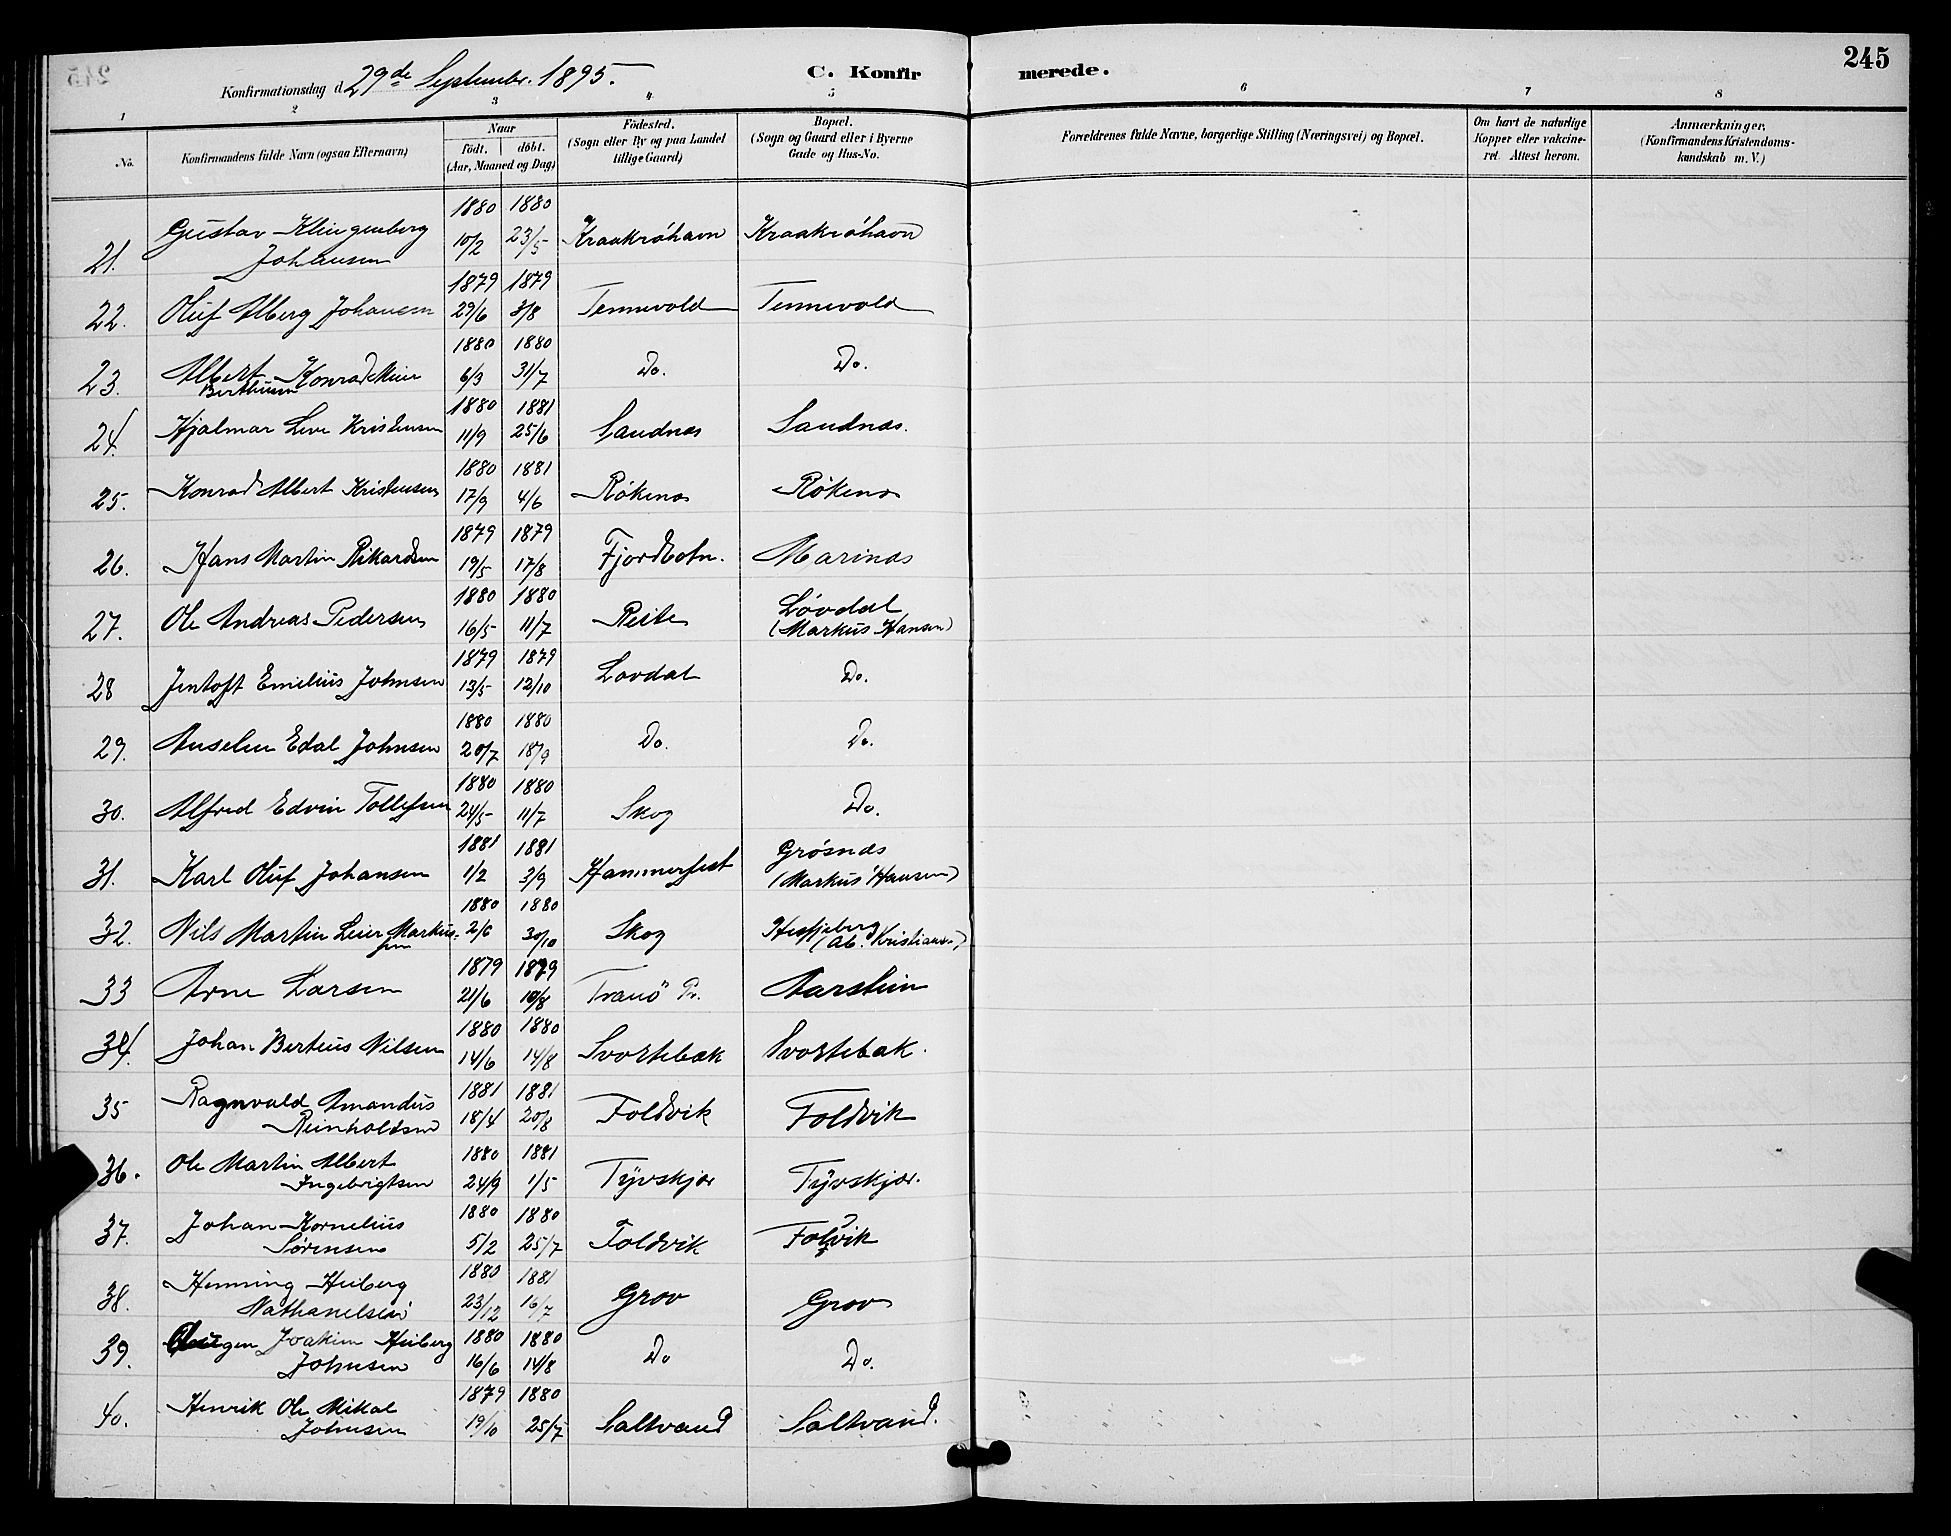 245
Konfirmationsdag d 29de Septembr. 1895.
C. Konfirmerede.
1 2 3 4 5 6 7 8
No.
Konfirmandens fulde Navn (ogsaa Efternavn)
Naar
födt. döbt.
(Aar, Maaned og Dag)
Födested.
(Sogn eller By og paa Landet
tillige Gaard)
Bopæl.
(Sogn og Gaard eller i Byerne
Gade og Hus-No.
Forældrenes fulde Navne, borgerlige Stilling (Næringsvei) og Bopæl.
Om havt de naturlige
Kopper eller vakcine-
ret. Attest herom.
Anmærkninger.
(Konfirmandens Kristendoms-
kundskab m. V.)
1880 1880
21. Gustav Klingenberg 10/2 23/5 Kraakröhavn Kraakröhavn
Johansen
1879 1879
22. Oluf Alberg Johansen 29/6 3/8 Tennevold Tennevold
1880 1880
23. Albert Konrad Meier 6/3 31/7 Do. Do.
Berthusen
1880 1881
24. Hjalmar Leve Kristensen 11/9 25/6 Sandnæs Sandnæs.
1880 1881
25. Konrad Albert Kristensen 17/9 4/6 Rökenæs Rökenæs
1879 1879
26. Hans Martin Rikardsen 19/5 17/8 Fjordbotn. Marinæs
1880 1880
27. Ole Andreas Pedersen 16/5 11/7 Reite Lövdal
(Markus Hansen)
1879 1879
28 Jentoft Emelius Johnsen 13/5 12/10 Lövdal Do.
1880 1880
29. Anselm Edal Johnsen 20/7 18/9 Do. Do.
1880 1880
30. Alfred Edvin Tollefsen 24/5 11/7 Skog Do.
1881 1881
31. Karl Oluf Johansen 1/2 3/9 Hammerfest Grösnæs
(Markus Hansen)
1880 1880
32. Nils Martin Leier Markus- 2/6 30/10 Skog
sen (Ab. Kristiansen)
1879 1879
33 Arne Larsen 21/6 10/8 Tranö Pr. Aarstein
1880 1880
34. Johan Berteus Nilsen 14/6 14/8 Svartebæk Svartebæk.
1881 1881
35 Ragnvald Amandus 18/4 20/8 Foldvik Foldvik
Reinholdsen
1880 1881
36. Ole Martin Albert 24/9 1/5 Tyvskjær Tyvskjær.
Ingebrigtsen
1880 1880
37. Johan Kornelius 5/2 25/7 Foldvik Foldvik
Sörensen
1880 1881
38. Henning Heiberg 23/12 16/7 Grov Grov
Nathanelsen
1880 1880
39. Joakim Heiberg 16/6 14/8 Do Do.
Johnsen
1879 1880
40. Henrik Ole Mikal 19/10 25/7 Saltvand Saltvand.
Johnsen